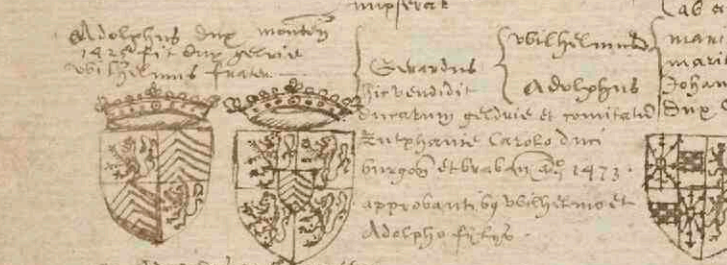 Adolphus dux monten
1425 fit dux gelrie
wilhelmus frater
Gerardus
hic vendidit
ducatum geldrie et comitatū
Zutphanie Carolo duci
burgoñ et braban aō 1473.
approbantibq wilhelmo et
Adolpho filijs.
wilhelmus
Adolphus
lab a
mari
Johan
dux